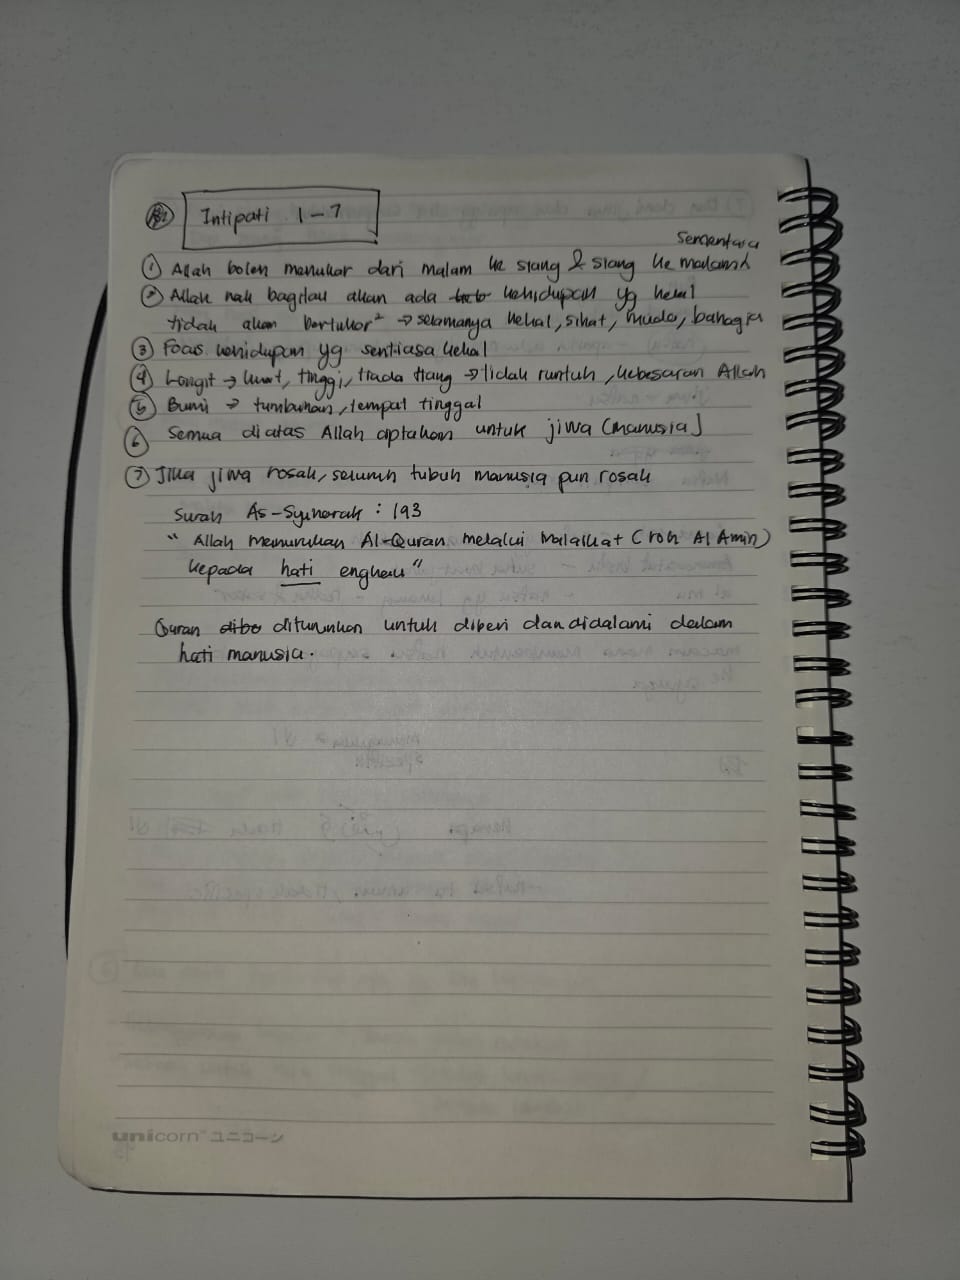 Intipati 1-7
Sementara
① Allah boleh menukar dari malam ke siang & siang ke malam
② Allah nak bagitau akan ada kehidupan yg kekal
tidak akan bertukar² → selamanya kekal, sihat, muda, bahagia
③ Focus kehidupan yg sentiasa kekal
④ Langit → kuat, tinggi, tiada tiang → tidak runtuh, kebesaran Allah
⑤ Bumi → tumbuhan, tempat tinggal
⑥ Semua diatas Allah ciptakan untuk jiwa (manusia)
⑦ Jika jiwa rosak, seluruh tubuh manusia pun rosak
Surah As-Syuharak : 193
“ Allah menurunkan Al-Quran melalui Malaikat (roh Al Amin)
kepada hati engkau ”
Quran diturunkan untuk diberi dan didalami dalam
hati manusia.
unicorn ユニコーン